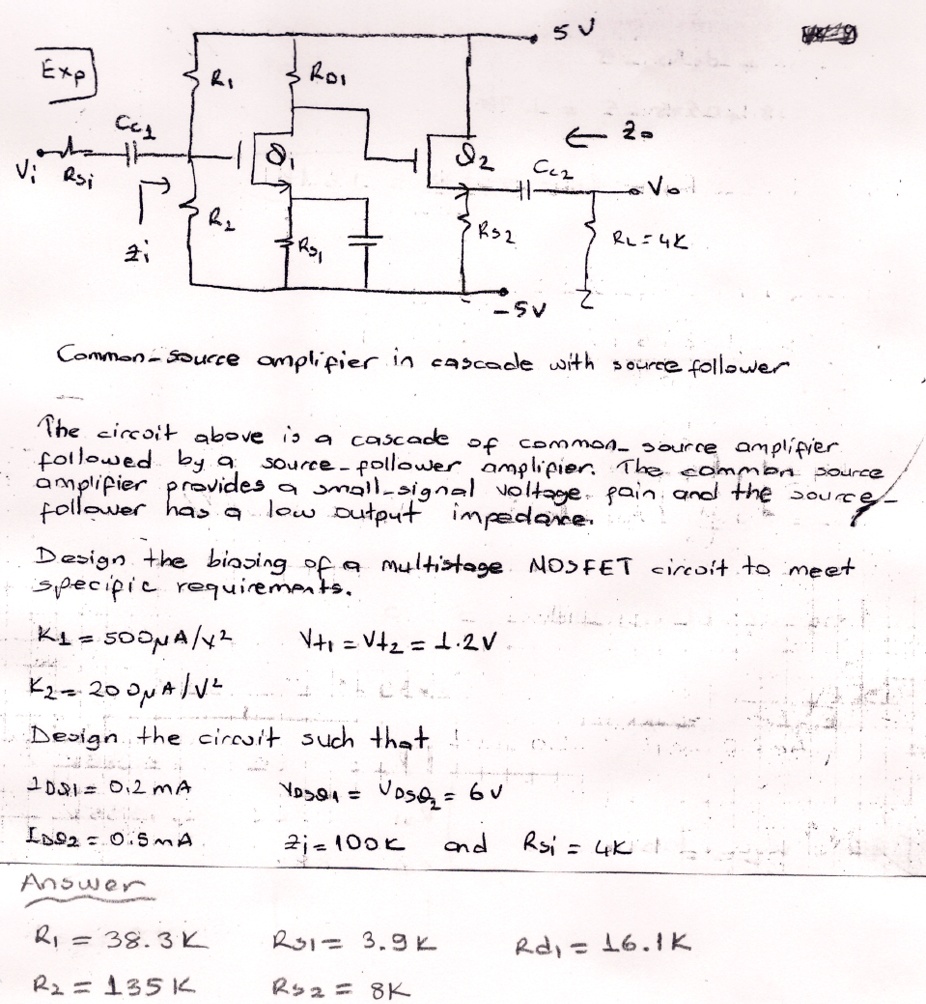 5 V
Exp
R1
RD1
Cc1
Q1
Q2
← Zo
Cc2
Vi
Rsi
Vo
R2
Rs1
Rs2
RL = 4K
Zi
-5V
Common-Source amplifier in cascade with source follower
The circuit above is a cascade of common-source amplifier
followed by a source-follower amplifier. The common source
amplifier provides a small-signal voltage gain and the source-
follower has a low output impedance.
Design the biasing of a multistage MOSFET circuit to meet
specific requirements.
K1 = 500µA/V² Vt1 = Vt2 = 1.2V
K2 = 200µA/V²
Design the circuit such that
IDQ1 = 0.2 mA VDSQ1 = VDSQ2 = 6V
IDQ2 = 0.5mA Zi = 100K and Rsi = 4K
Answer
R1 = 38.3K Rs1 = 3.9K Rd1 = 16.1K
R2 = 135K Rs2 = 8K